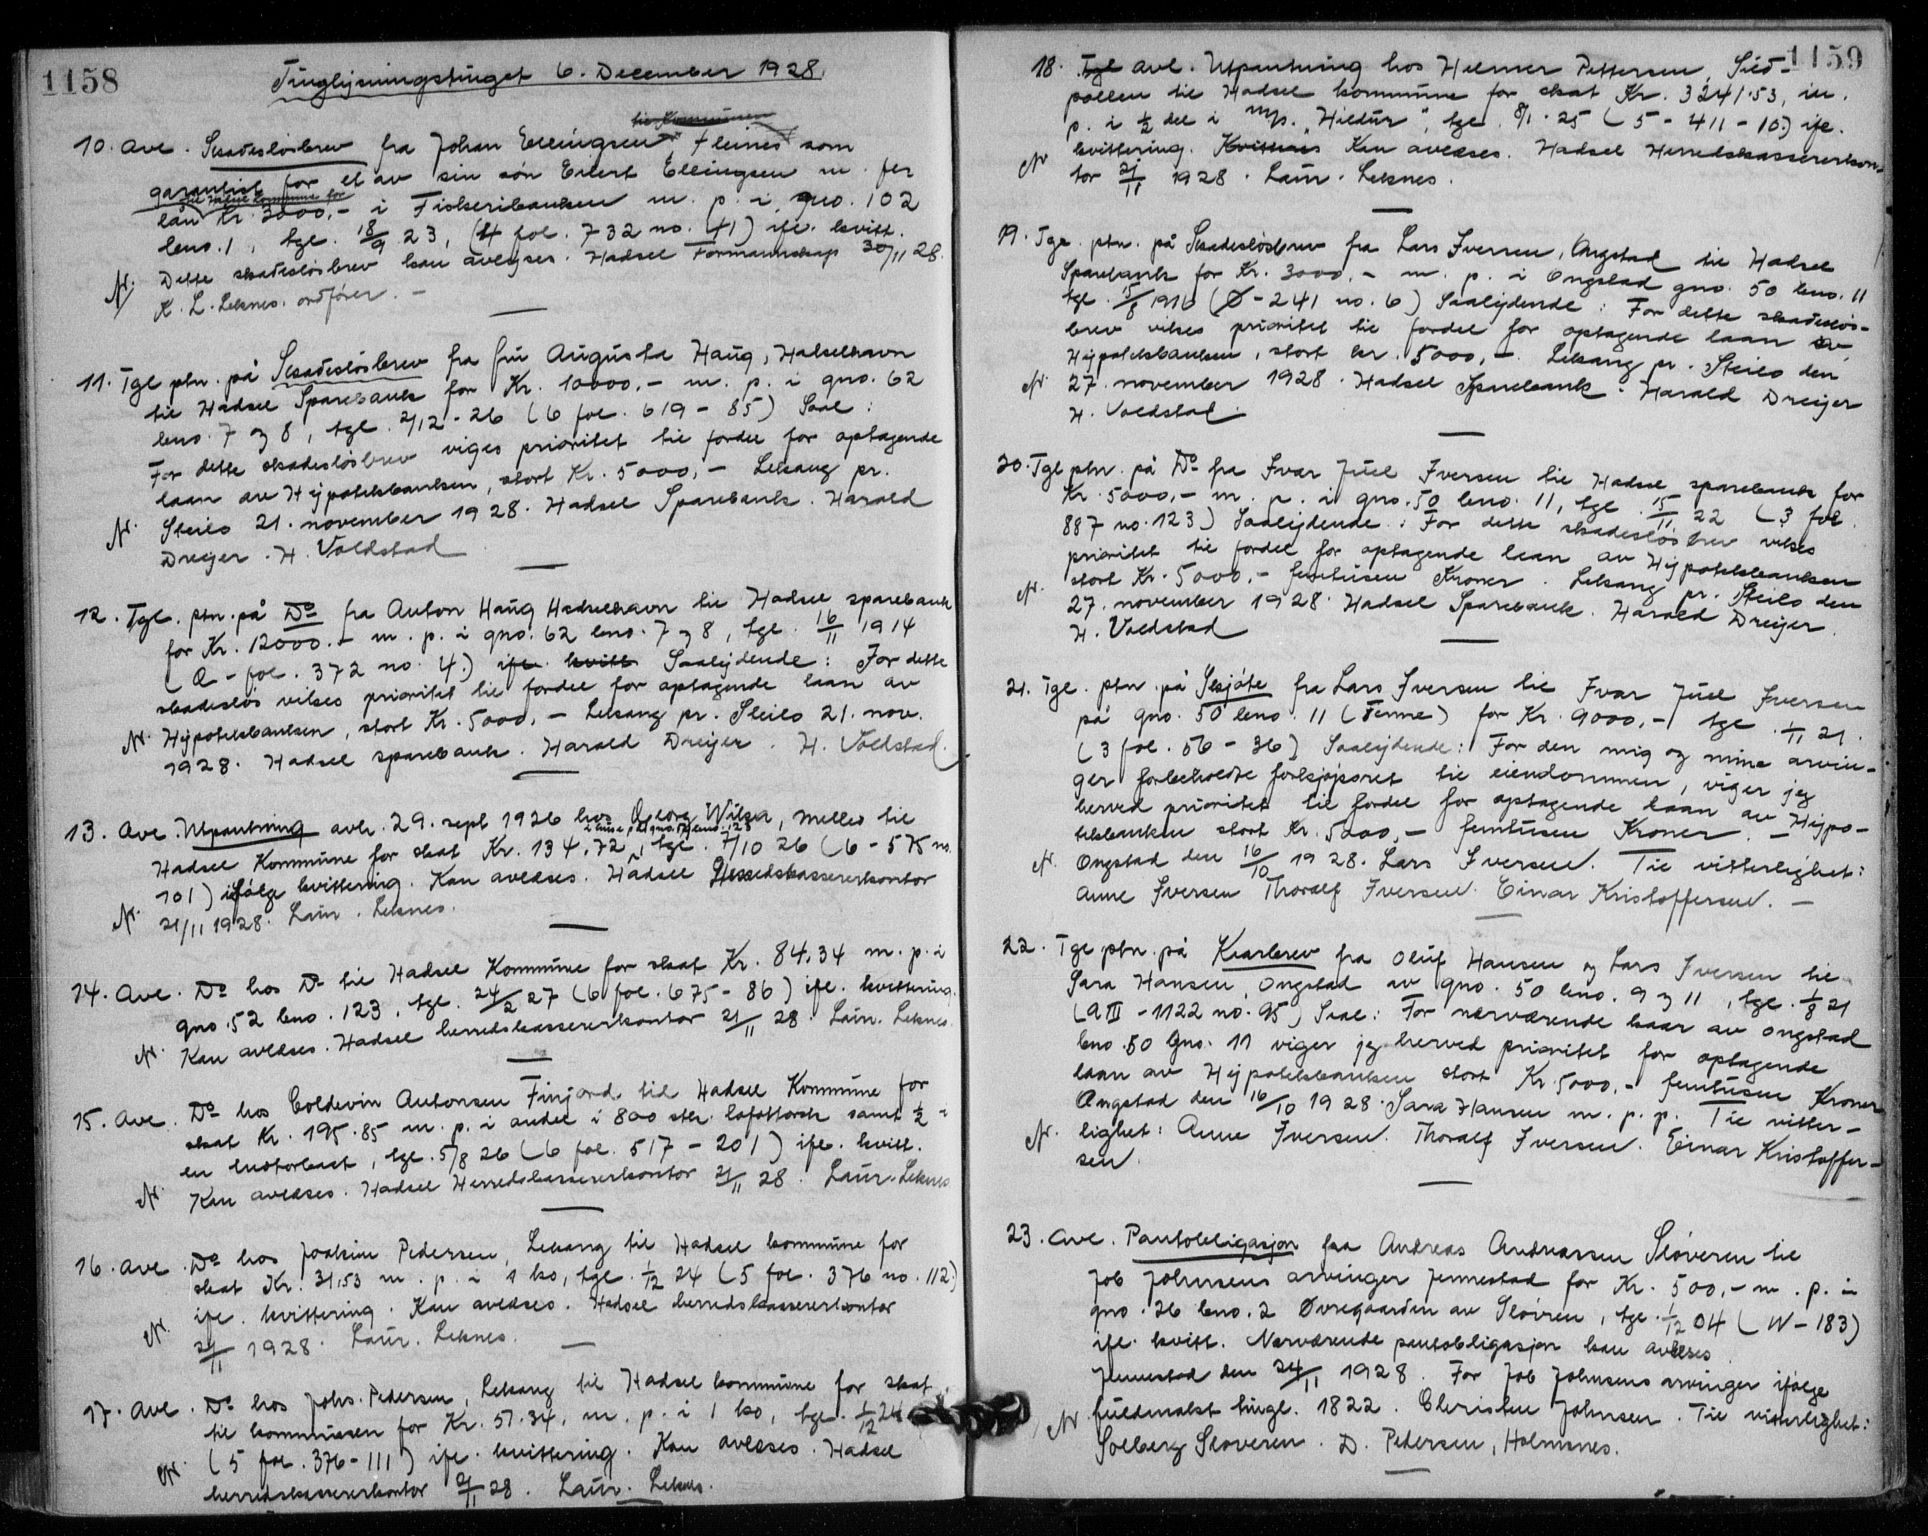 1158
Tinglysningstinget 6. December 1928.
10. Avl. Skadesløsbrev fra Johan Ellingsen Fleines som
garantist for et av sin søn Evert Ellingsen m. fer
til Hadsel kommune for
lån Kr. 3000,- i Fiskeribanken m. p. i gno. 102
bno. 1, tgl. 18/9 23, (4 fol. 732 no. 41) ifl. kvitt.
Dette skadesløsbrev kan avlyses. Hadsel Formannskap 30/11 28.
N. K. L. Leknes. ordfører. -
11. Tgl ptn. på Skadesløsbrev fra fru Augusta Haug, Hadselhavn
til Hadsel Sparebank for Kr. 10000.- m. p. i gno. 62
bno. 7 og 8, tgl. 2/12-26 (6 fol. 619-85) Saal:
For dette skadesløsbrev viges prioritet til fordel for optagende
laan av Hypotekbanken, stort Kr. 5000,- Leksang pr.
N. Steilo 21. november 1928. Hadsel Sparebank. Harald
Dreyer. H. Voldstad
12. Tgl. ptn. på Do fra Anton Haug Hadselhavn til Hadsel sparebank
for Kr. 12000.- m. p. i gno. 62 bno. 7 og 8, tgl. 16/11 1914
(Q - fol. 372 no. 4.) ifl. kvitt Saalydende: For dette
skadesløs vikes prioritet til fordel for optagende laan av
Hypotekbanken, stort Kr. 5000.- Leksang pr. Steilo 21. nov.
N. 1928. Hadsel sparebank. Harald Dreyer. H. Voldstad.
13. Avl. Utpantning avh. 29. sept 1926 hos Georg Wilsen, Melbo til
i hus på gno. 52 bno. 123
Hadsel Kommune for skat Kr. 134,72, tgl. 7/10 26 (6-575 no.
101) ifølge kvittering. Kan avlæses. Hadsel Herredskassererkontor
N. 21/11 1928. Laur. Leknes.
14. Avl. Do hos Do til Hadsel Kommune for skat Kr. 84,34 m. p. i
gno. 52 bno. 123, tgl. 24/2 27 (6 fol. 675-86) ifl. kvittering.
N. Kan avlæses. Hadsel herredskassererkontor 21/11 28. Laur. Leknes.
15. Avl. Do hos Coldevin Antonsen Finjord til Hadsel Kommune for
skat Kr. 195.85 m. p. i andel i 800 stk. tørk samt 1/2 i
en motorbaat, tgl. 5/8 26 (6 fol. 517-201) ifl. kvitt.
N. Kan avlæses. Hadsel Herredskassererkontor 21/11 28. Laur. Leknes
16. Avl. Do hos Joakim Pedersen, Leksang til Hadsel kommune for
skat Kr. 31,53 m. p. i 1 ko, tgl. 1/12 24 (5 fol. 376 no. 112)
ifl. kvittering. Kan avlæses. Hadsel herredskassererkontor
N. 21/11 1928. Laur. Leknes.
17. Avl. Do hos Johs. Pedersen, Leksang til Hadsel kommune for skat
til kommunen for Kr. 51.34, m. p. i 1 ko, tgl. 1/12 24
(5 fol. 376-111) ifl. kvittering. Kan avlæses. Hadsel
N. herredskassererkontor 21/11 28. Laur. Leknes.
1159
18. Tgl Avl. Utpantning hos Helmer Pettersen, Sild-
pollen til Hadsel kommune for skat Kr. 3241.53, m.
p. i 1/2 del i m/s. "Hildur", tgl. 8/1. 25 (5-411-10.) ifl.
kvittering. Kan avlæses. Hadsel Herredskassererkon-
N. tor 21/11 1928. Laur. Leknes.
19. Tgl. ptn. på Skadesløsbrev fra Lars Iversen, Ongstad til Hadsel
Sparebank for Kr. 3000.- m. p. i Ongstad gno. 50 bno. 11
tgl. 15/8 1916 (Ø-241 no. 6) Saalydende: For dette skadesløs-
brev vikes prioritet til fordel for optagende laan av
Hypotekbanken, stort kr. 5000,-. Leksang pr. Steilo den
N. 27. november 1928. Hadsel Sparebank. Harald Dreyer
H. Voldstad.
20. Tgl ptn. på Do fra Ivar Juel Iversen til Hadsel sparebank for
Kr. 5000,- m. p. i gno. 50 bno. 11, tgl. 15/11 22 (3 fol.
887 no. 123) Saalydende: For dette skadesløsbrev vikes
prioritet til fordel for optagende laan av Hypotekbanken
stort Kr. 5000.- femtusen Kroner. Leksang pr. Steilo den
N. 27. november 1928. Hadsel Sparebank. Harald Dreyer.
H. Voldstad
21. Tgl. ptn. på Skjøte fra Lars Iversen til Ivar Juel Iversen
på gno. 50 bno. 11 (Femne) for Kr. 9000,- tgl. 1/11 21.
(3 fol. 56-36) Saalydende: For den mig og mine arvin-
ger forbeholdte forkjøpsret til eiendommen, viger jeg
herved prioritet til fordel for optagende laan av Hypo-
tekbanken stort Kr. 5000,- femtusen Kroner. -
N. Ongstad den 16/10 1928. Lars Iversen. Til vitterlighet:
Anne Iversen Thoralf Iversen. Einar Kristoffersen. -
22. Tgl ptn. på Kaarbrev fra Oluf Hansen og Lars Iversen til
Sara Hansen, Ongstad av gno. 50 bno. 9 og 11, tgl. 1/8 21
(A III - 1122 no. 95) Saal: For nærværende kaar av Ongstad
bno. 50 Gno. 11 viger jeg herved prioritet for optagende
laan av Hypotekbanken stort Kr. 5000.- femtusen Kroner
Ongstad den 16/10 1928. Sara Hansen m. p. p. Til vitter-
N. lighet: Anne Iversen. Thoralf Iversen. Einar Kristoffer-
sen.
23. Avl. Pantobligasjon fra Andreas Andreassen Sloveren til
Job Johnsens arvinger Jennestad for Kr. 500,- m. p. i
gno. 26 bno. 2 Øvregaarden av Sloveren, tgl. 1/12 04 (W-183)
ifl. kvitt. Nærværende pantobligasjon kan avlæses
Jennestad den 24/11 1928. For Job Johnsens arvinger ifølge
N. fuldmakt tingl. 1822. Christen Johnsen. Til vitterlighet:
Solberg Sloveren. D. Pedersen, Holmsnes.